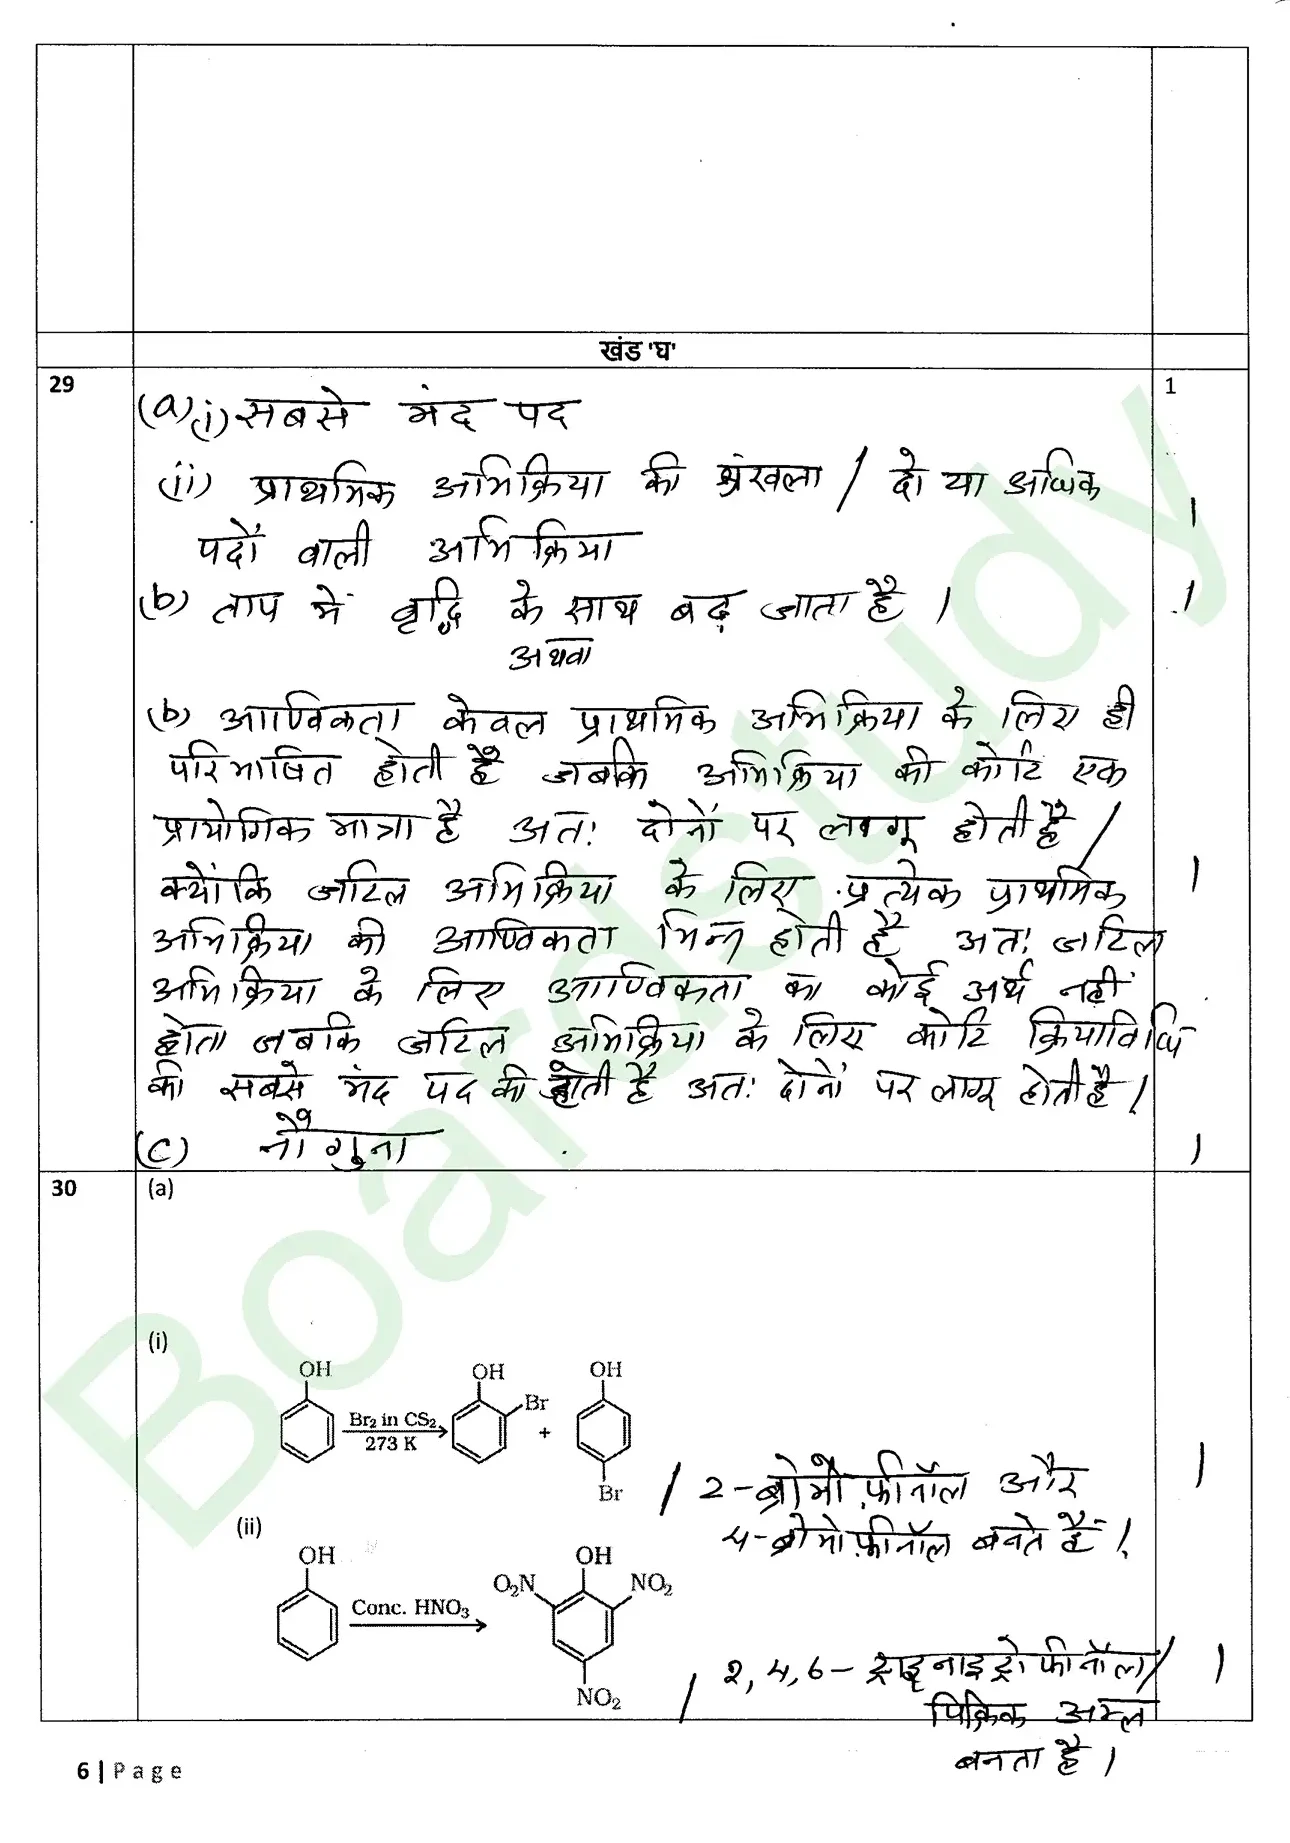 खंड 'घ'
29
(a)(i) सबसे मंद पद
1
(ii) प्राथमिक अभिक्रिया की श्रंखला / दो या अधिक
पदों वाली अभिक्रिया
1
(b) ताप में वृद्धि के साथ बढ़ जाता है ।
1
अथवा
(b) आण्विकता केवल प्राथमिक अभिक्रिया के लिए ही
परिभाषित होती है जबकि अभिक्रिया की कोटि एक
प्रायोगिक मात्रा है अतः दोनों पर लागू होती है /
क्योंकि जटिल अभिक्रिया के लिए प्रत्येक प्राथमिक
1
अभिक्रिया की आण्विकता भिन्न होती है अतः जटिल
अभिक्रिया के लिए आण्विकता का कोई अर्थ नहीं
होता जबकि जटिल अभिक्रिया के लिए कोटि क्रियाविधि
की सबसे मंद पद की होती है अतः दोनों पर लागू होती है ।
(c) नौ गुना
1
30
(a)
(i)
OH
Br₂ in CS₂
273 K
OH
Br
+
OH
Br
/ 2-ब्रोमोफ़ीनॉल और
1
4-ब्रोमोफ़ीनॉल बनते हैं ।
(ii)
OH
Conc. HNO₃
OH
O₂N
NO₂
NO₂
/ 2,4,6-ट्राइनाइट्रोफीनॉल/
1
पिक्रिक अम्ल
बनता है ।
6 | Page
Boardstudy